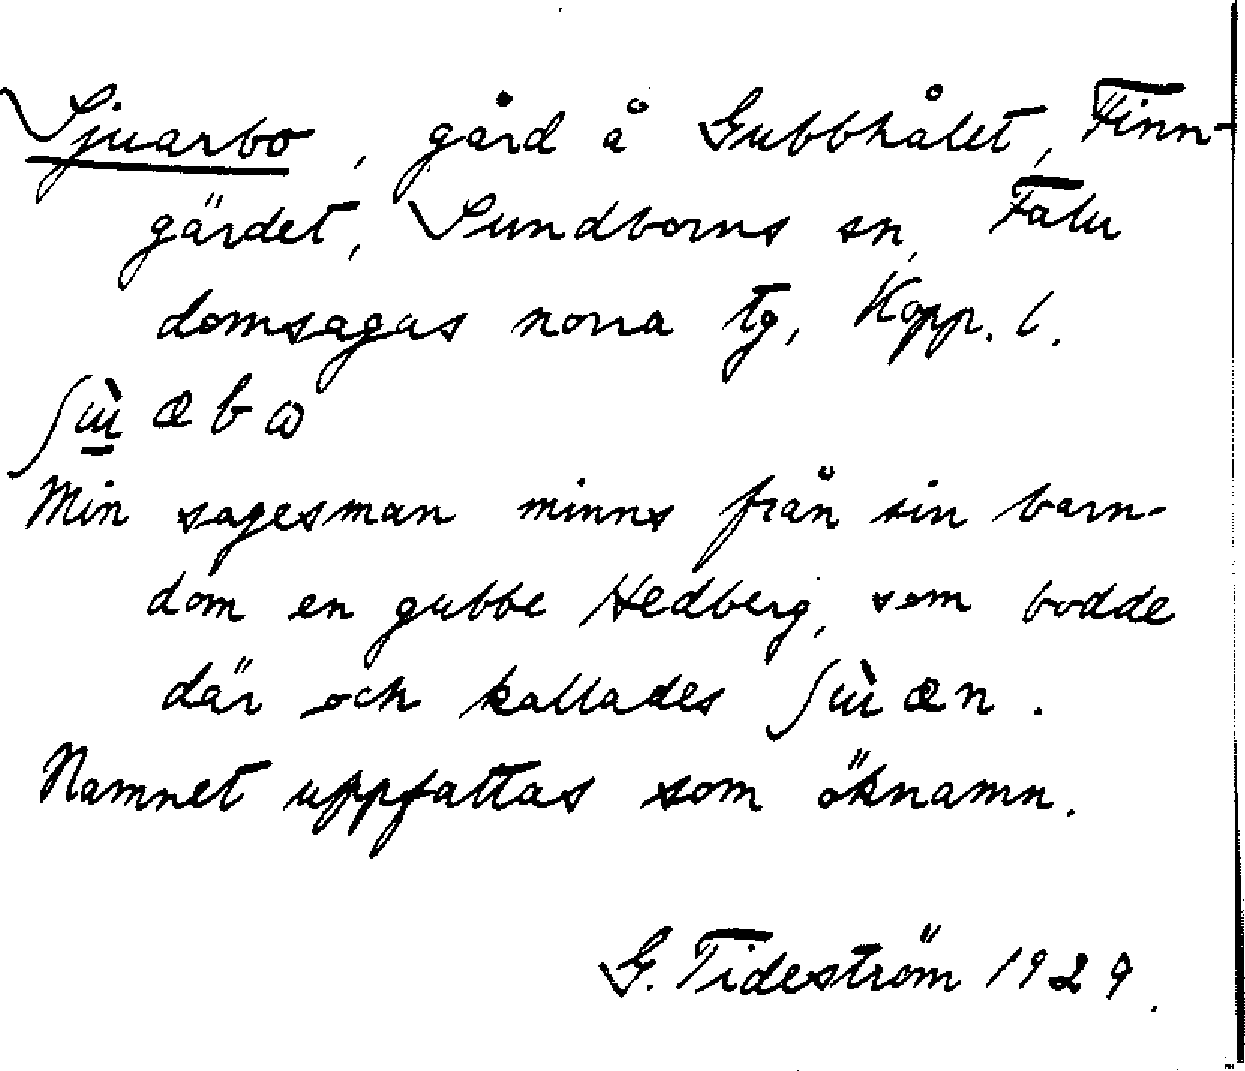 Sjuarbo, gård å Gubbhålet, Finn-
gärdet, Sundborns sn, Falu
domsagas norra tg, Kopp. l.
Min sagesman minns från sin barn-
dom en gubbe Hedberg, som bodde
där och kallades
Namnet uppfattas som öknamn.
G. Tideström 1929.